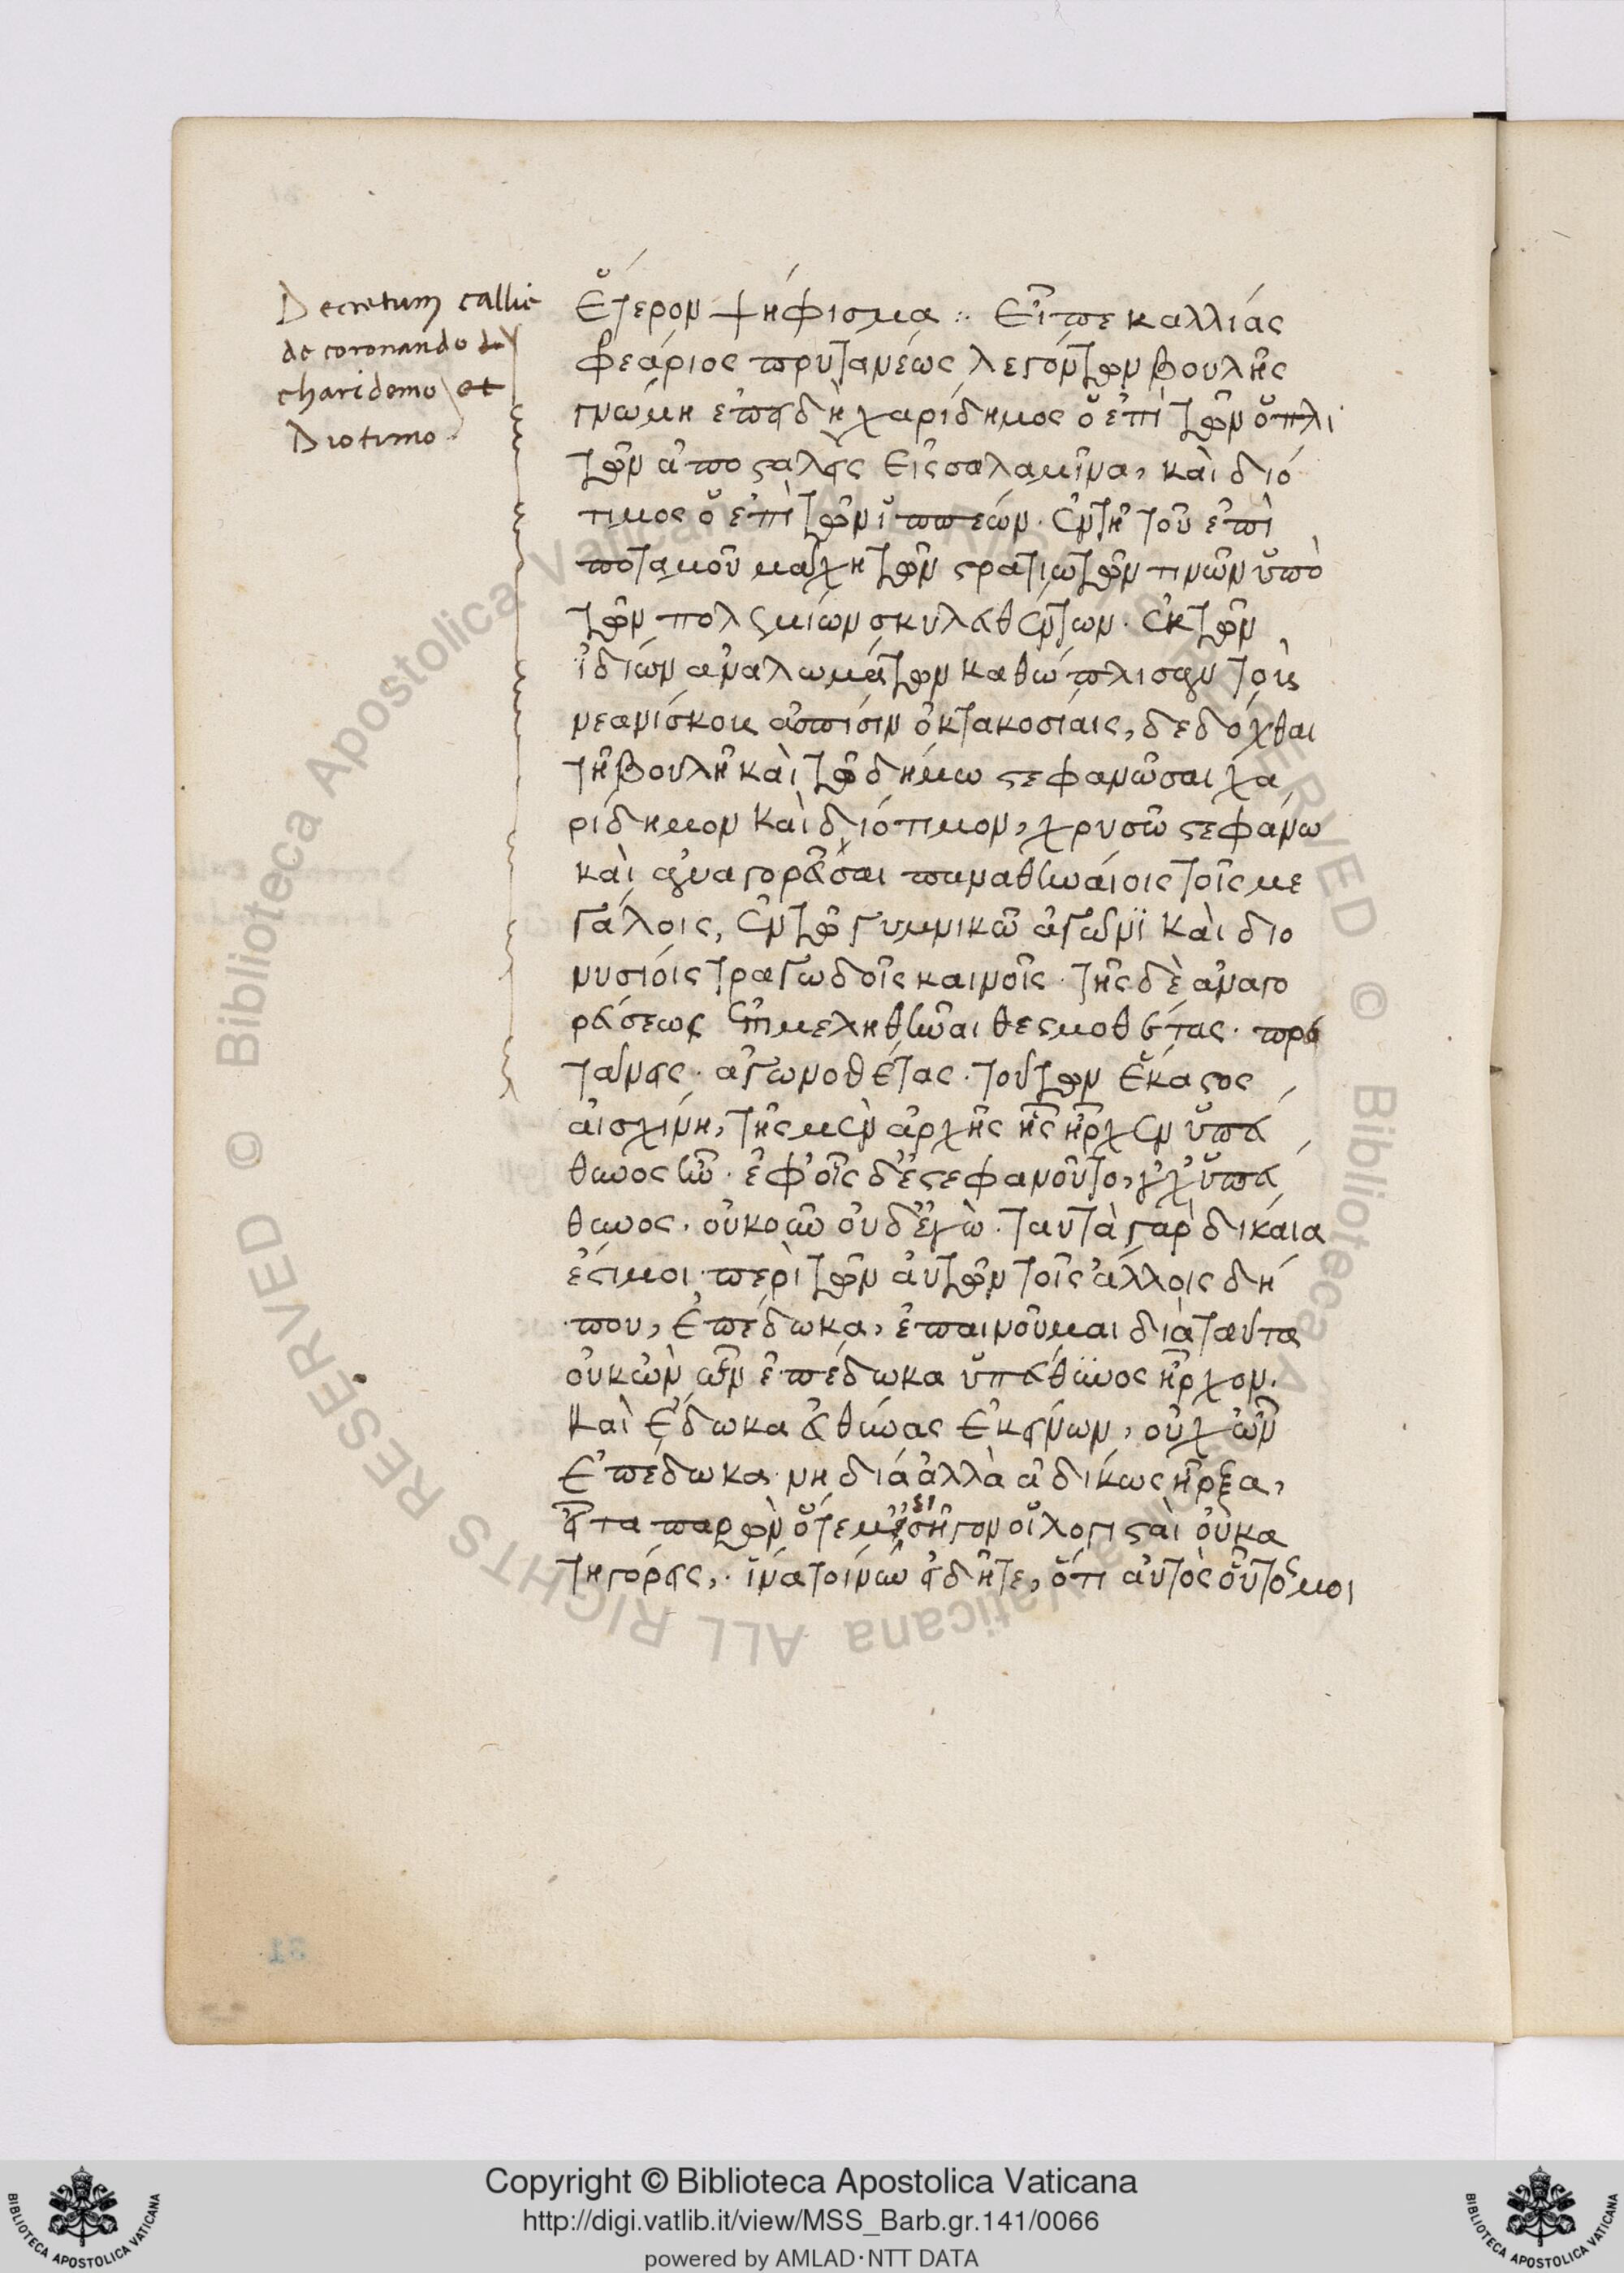 Decretum callie
de coronando
charidemo et
Diotimo
Ἕτερον ψήφισμα :· Εἶπε καλλιάς
φεάριος πρυτανέως λεγόντων βουλῆς
γνώμη ἐπειδὴ χαρίδημος ὁ ἐπὶ τῶν ὁπλι
τῶν ἀποσταλεὶς εἰς σαλαμῖνα, καὶ διό
τιμος ὁ ἐπὶ τῶν ἱππεών· ἐν τῆ τοῦ ἐπὶ
ποταμοῦ μάχη τῶν στρατιωτῶν τινῶν ὑπὸ
τῶν πολεμίων σκυλευθέντων· ἐκ τῶν
ἰδίων ἀναλωμάτων καθώπλισαν τοὺς
νεανίσκους ἀσπίσιν ὀκτακοσίαις, δεδόχθαι
τῆ βουλῆ καὶ τῶ δήμω στεφανῶσαι χα
ρίδημον καὶ διότιμον, χρυσῶ στεφάνω
καὶ ἀναγορεῦσαι παναθηναίοις τοῖς με
γάλοις, ἐν τῶ γυμνικῶ ἀγῶνϊ καὶ διο
νυσίοις τραγωδοῖς καινοῖς· τῆς δὲ ἀναγο
ρεύσεως ἐπιμεληθῆναι θεσμοθέτας· πρυ
τάνεις· ἀγωνοθέτας· τούτων ἕκαστος
αἰσχίνη, τῆς μὲν ἀρχῆς ἧς ἦρχεν ὑπεύ
θυνος ἦν· ἐφ' οἷς δ' ἐστεφανοῦτο, οὐχ ὑπεύ
θυνος· οὐκοῦν οὐδ' ἐγὼ· ταυτὰ γὰρ δίκαια
ἐστί μοι περὶ τῶν αὐτῶν τοῖς ἄλλοις δή
που, ἐπέδωκα, ἐπαινοῦμαι διὰ ταῦτα
οὐκ ὢν ὧν ἐπέδωκα ὑπεύθυνος ἦρχον.
καὶ ἔδωκα εὐθύνας ἐκείνων, οὐχ ὧν
ἐπέδωκα νὴ δία ἀλλὰ ἀδίκως ἦρξα,
εἶτα παρὼν ὅτε με εἰσῆγον οἱ λογισταὶ οὐ κα
τηγόρεις,· ἵνα τοίνυν εἰδῆτε, ὅτι αὐτὸς οὗτός μοι
Copyright © Biblioteca Apostolica Vaticana
http://digi.vatlib.it/view/MSS_Barb.gr.141/0066
powered by AMLAD·NTT DATA